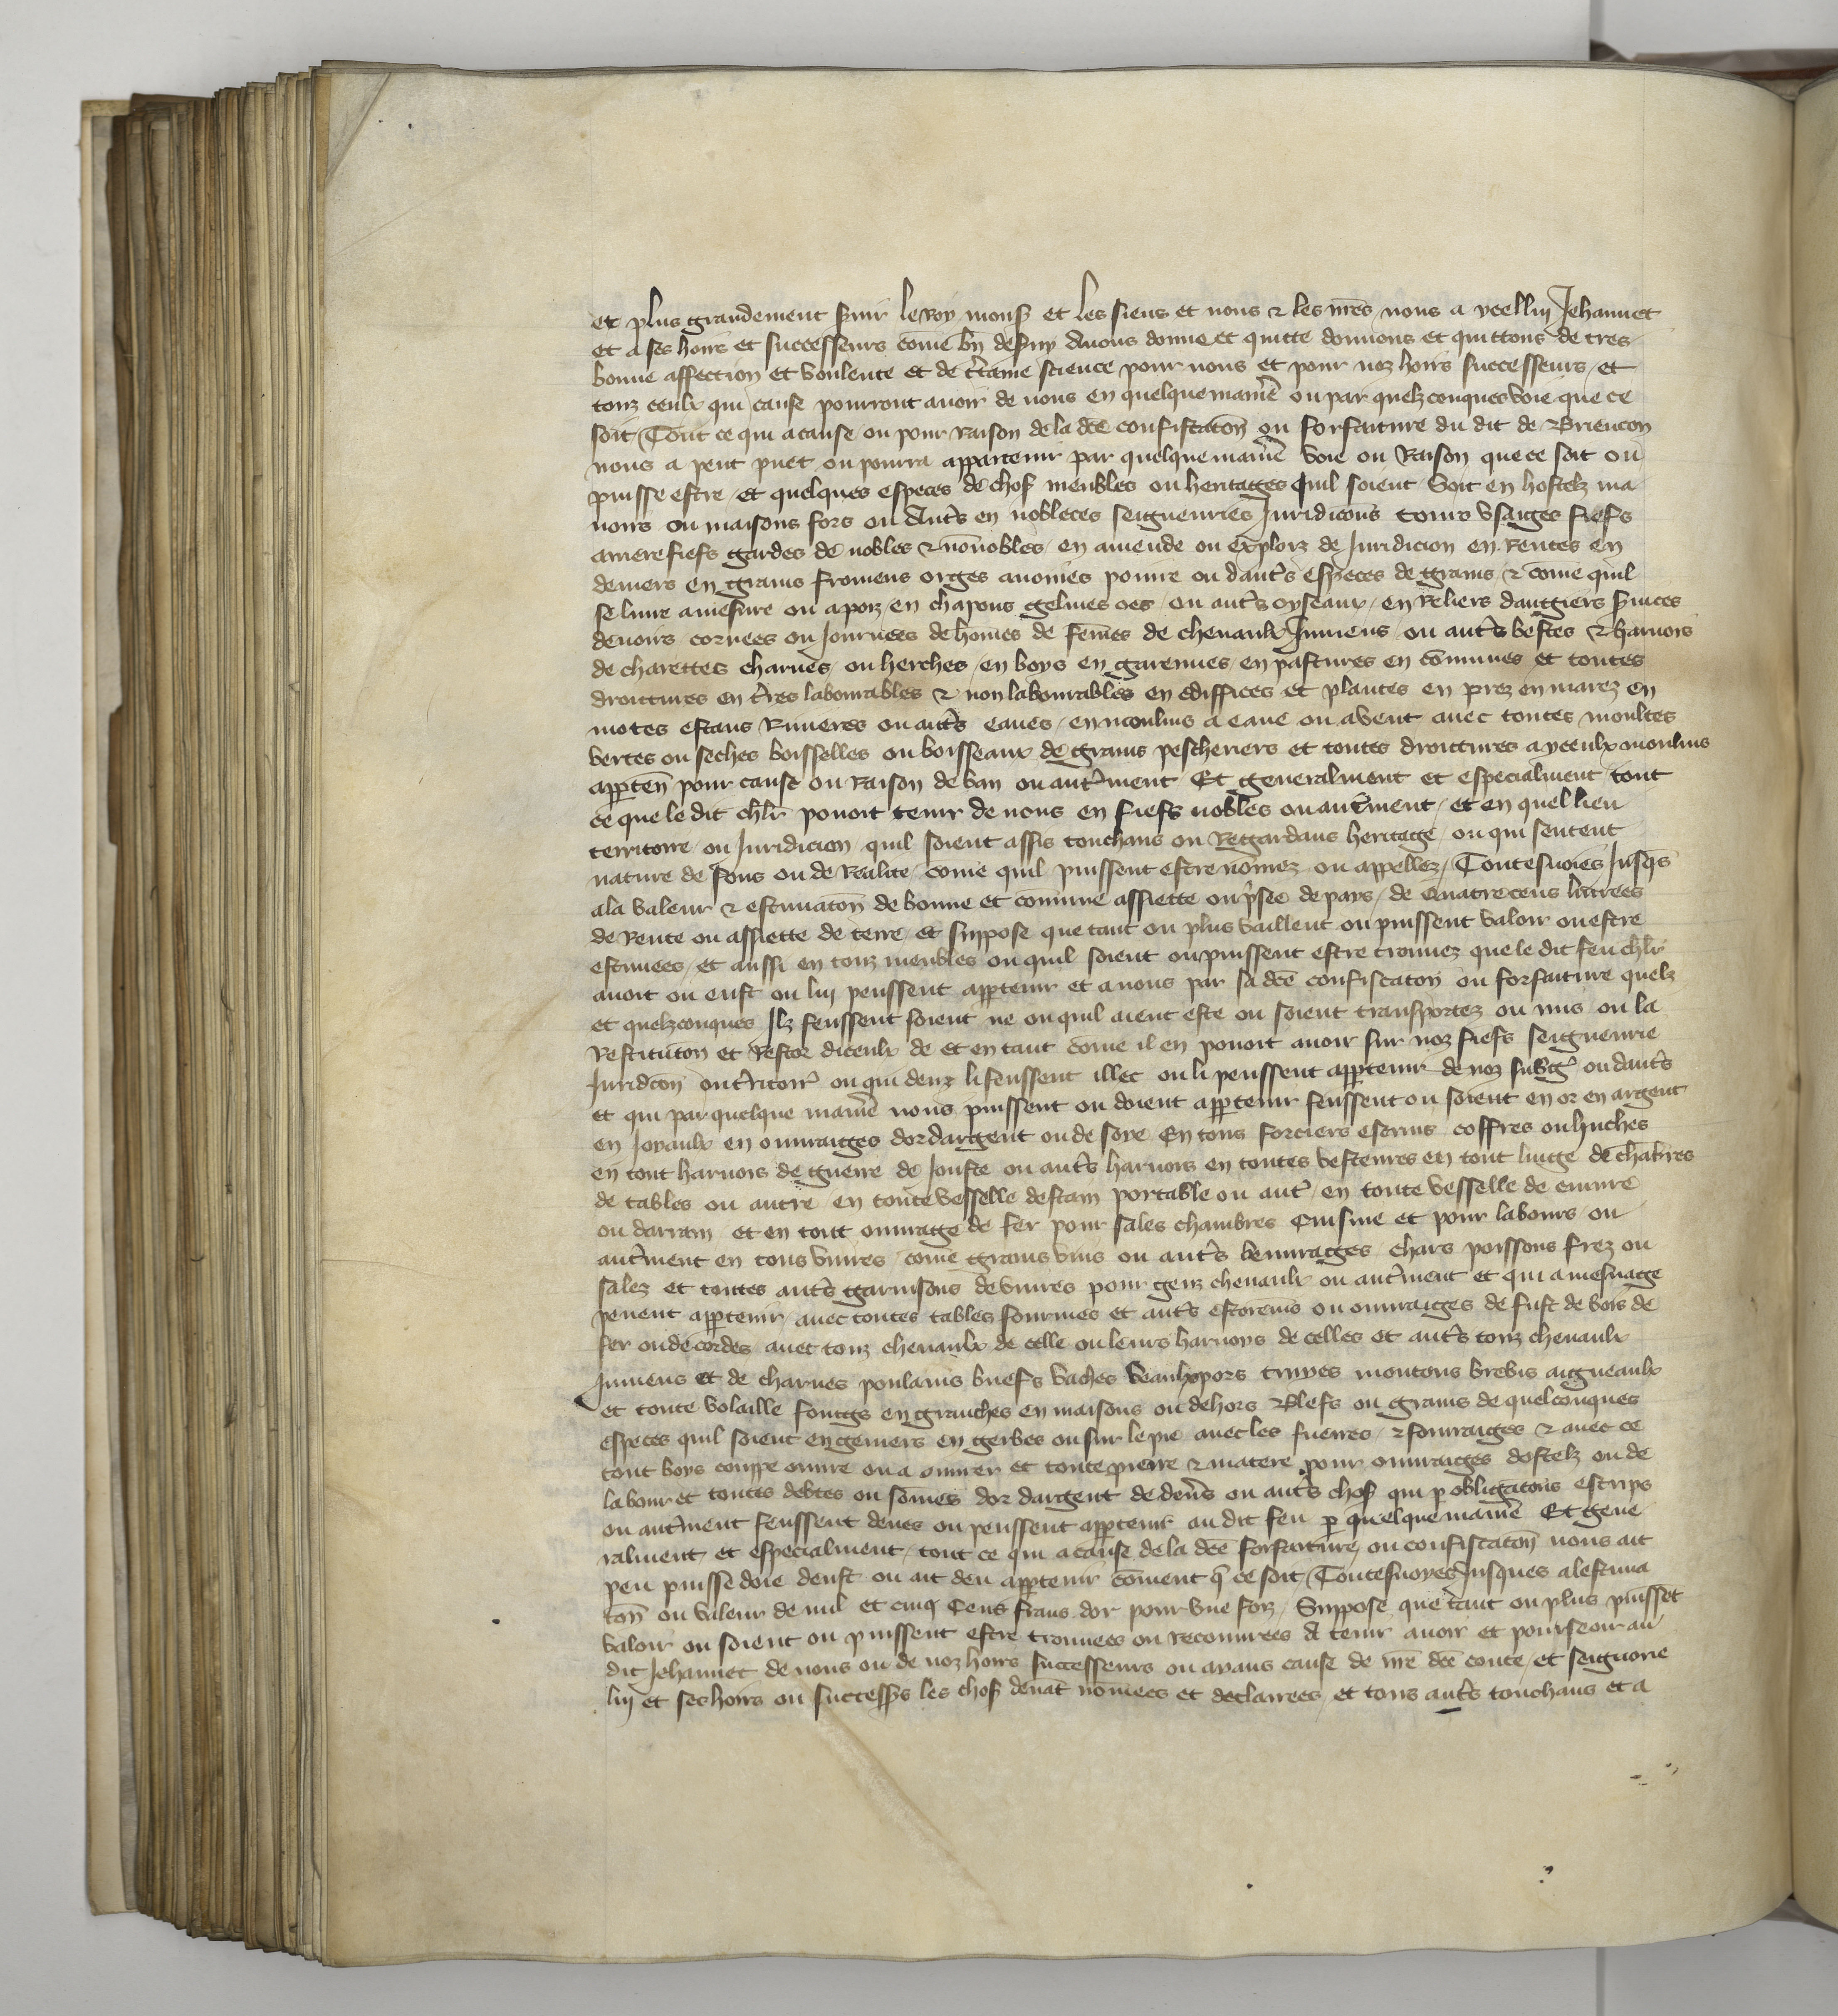 et plus grandement s̃uir le Roy mons̃ et les siens et nous & les nr̃es nous a ycelluy Jehannet
et a ses hoirs et successeurs com̃e bñ des̃uy Auons donne et quitte donnons et quittons de tres
bonne affection et voulente et de c̃taine science pour nous et pour noz hoirs successeurs et
touz ceulx qui cause pourront auoir de nous en quelque manie᷑ ou par quelzconques voie que ce
soit Tout ce qui a cause ou pour Raison de la dc̃e confiscatõn ou forfaiture du dit de Briencon
nous a peut puet ou pourra appartenir par quelque manie᷑ voie ou Raison que ce soit ou
puisse estre et quelques especes de chos̃ meubles ou heritages quil soient Soit en hostelz ma
noirs ou maisons fors ou Aut̃s en nobleces seigneuries Juridicõns cours vsaiges fiefs
arrierefiefs gardes de nobles & nõnobles en amende ou exploiz de Juridicion en Rentes en
deniers en grains fromens orges auoines ou daut̃s especes de grains & com̃e quil
se liure a mesure ou a poiz en chapons gelines oes ou aut̃s oyseaux en Reliers dangiers s̃uices
deuoirs coruees ou Journees de hom̃es de fem̃es de cheuaulx Jumens ou aut̃s bestes & harnois
de charettes charues ou herches en boys en garennes en pastures en com̃unes et toutes
droittures en t̃res labourables & non labourables en ediffices et plantes en prez en marez en
motes estans Riuieres ou aut̃s eaues en moulins a eaue ou a vent auec toutes moultes
vertes ou seches boisselles ou boisseaux de grains pescheriers et toutes droittures a yceulx moulins
apparteñ pour cause ou Raison de ban ou aut̃ment Et generalment et especialment tout
ce que le dit chlr̃ pouoit tenir de nous en fiefs nobles ou aut̃ment et en quel lieu
territoire ou Juridicion quil soient assis touchans ou Regardans heritage ou qui sentent
nature de fons ou de Realite com̃e quil puissent estre nom̃ez ou appellez Toutesuoies Jusq̃s
a la valeur & estimatõn de bonne et com̃une assiette ou p̃sec de pays de Quatre cens liurees
de Rente ou assiette de terre et suppose que tant ou plus vaillent ou puissent valoir ou estre
estimees et aussi en touz meubles ou quil soient ou puissent estre trouuez que le dit feu chlr̃
auoit ou eust ou luy peussent appartenir et a nous par sa dc̃e confiscatõn ou forfaiture quelz
et quelzconques Ilz feussent soient ne ou quil aient este ou soient transportez ou mis ou la
Restitutõn et Restor diceulx de et en tant com̃e il en pouoit auoir sur noz fiefs seigneurie
Juridicõn ou t̃ritoir̃ ou qui deuz li feussent illec ou li peussent appartenir de noz subg̃ ou daut̃s
et qui par quelque manie᷑ nous puissent ou doient appartenir feussent ou soient en or en argent
en Joyaulx en ouuraiges dor dargent ou de soye En tous forciers escrins coffres ou huches
en tout harnois de guerre de Jouste ou aut̃s harnois en toutes vesteures en tout linge de chãbres
de tables ou autre en toute vesselle destain portable ou aut̃ en toute vesselle de cuiure
ou darrain et en tout ouurage de fer pour sales chambres cuisine et pour labours ou
aut̃ment en tous viures com̃e grains vins ou aut̃s beuuraiges chars poissons frez ou
salez et toutes aut̃s garnisons de viures pour genz cheuaulx ou aut̃ment et qui a mesnage
peuent appartenir auec toutes tables fourmes et aut̃s estoremẽs ou ouuraiges de fust de bois de
fer ou de cordes auec touz cheuaulx de celle ou leurs harnoys de celles et aut̃s touz cheuaulx
Jumens et de charues poulains buefs vaches veaulx pors truyes moutons brebis aigneaulx
et toute volaille en granches en maisons ou dehors Blefs ou grains de quelconques
especes quil soient en greniers en gerbes ou sur le pie auec les fuerres & fourraiges & auec ce
tout boys coupe ouure ou a ouurer et toute pierre & matere pour ouuraiges dostelz ou de
labour et toutes debtes ou som̃es dor dargent de deñs ou aut̃s chos̃ qui p obligatõns escrips
ou aut̃ment feussent deues ou peussent appartenir au dit feu p quelque manie᷑ Et gene
ralment et especialment tout ce qui a cause de la dc̃e forfaiture ou confiscatõn nous ait
peu puisse doie deust ou ait deu appartenir com̃ent q̃ ce soit Toutesuoyes Jusques a lestima
tõn ou valeur de mil et cinq Cens frans dor pour vne foiz Suppose que tant ou plus puisset
valoir ou soient ou puissent estre trouuees ou recouurees A tenir auoir et pourseoir au
dit Jehannet de nous ou de noz hoirs successeurs ou ayans cause de nr̃e dc̃e conte et seignorie
luy et ses hoirs ou success̃s les chos̃ deuãt nom̃ees et declairees et tous aut̃s touchans et a